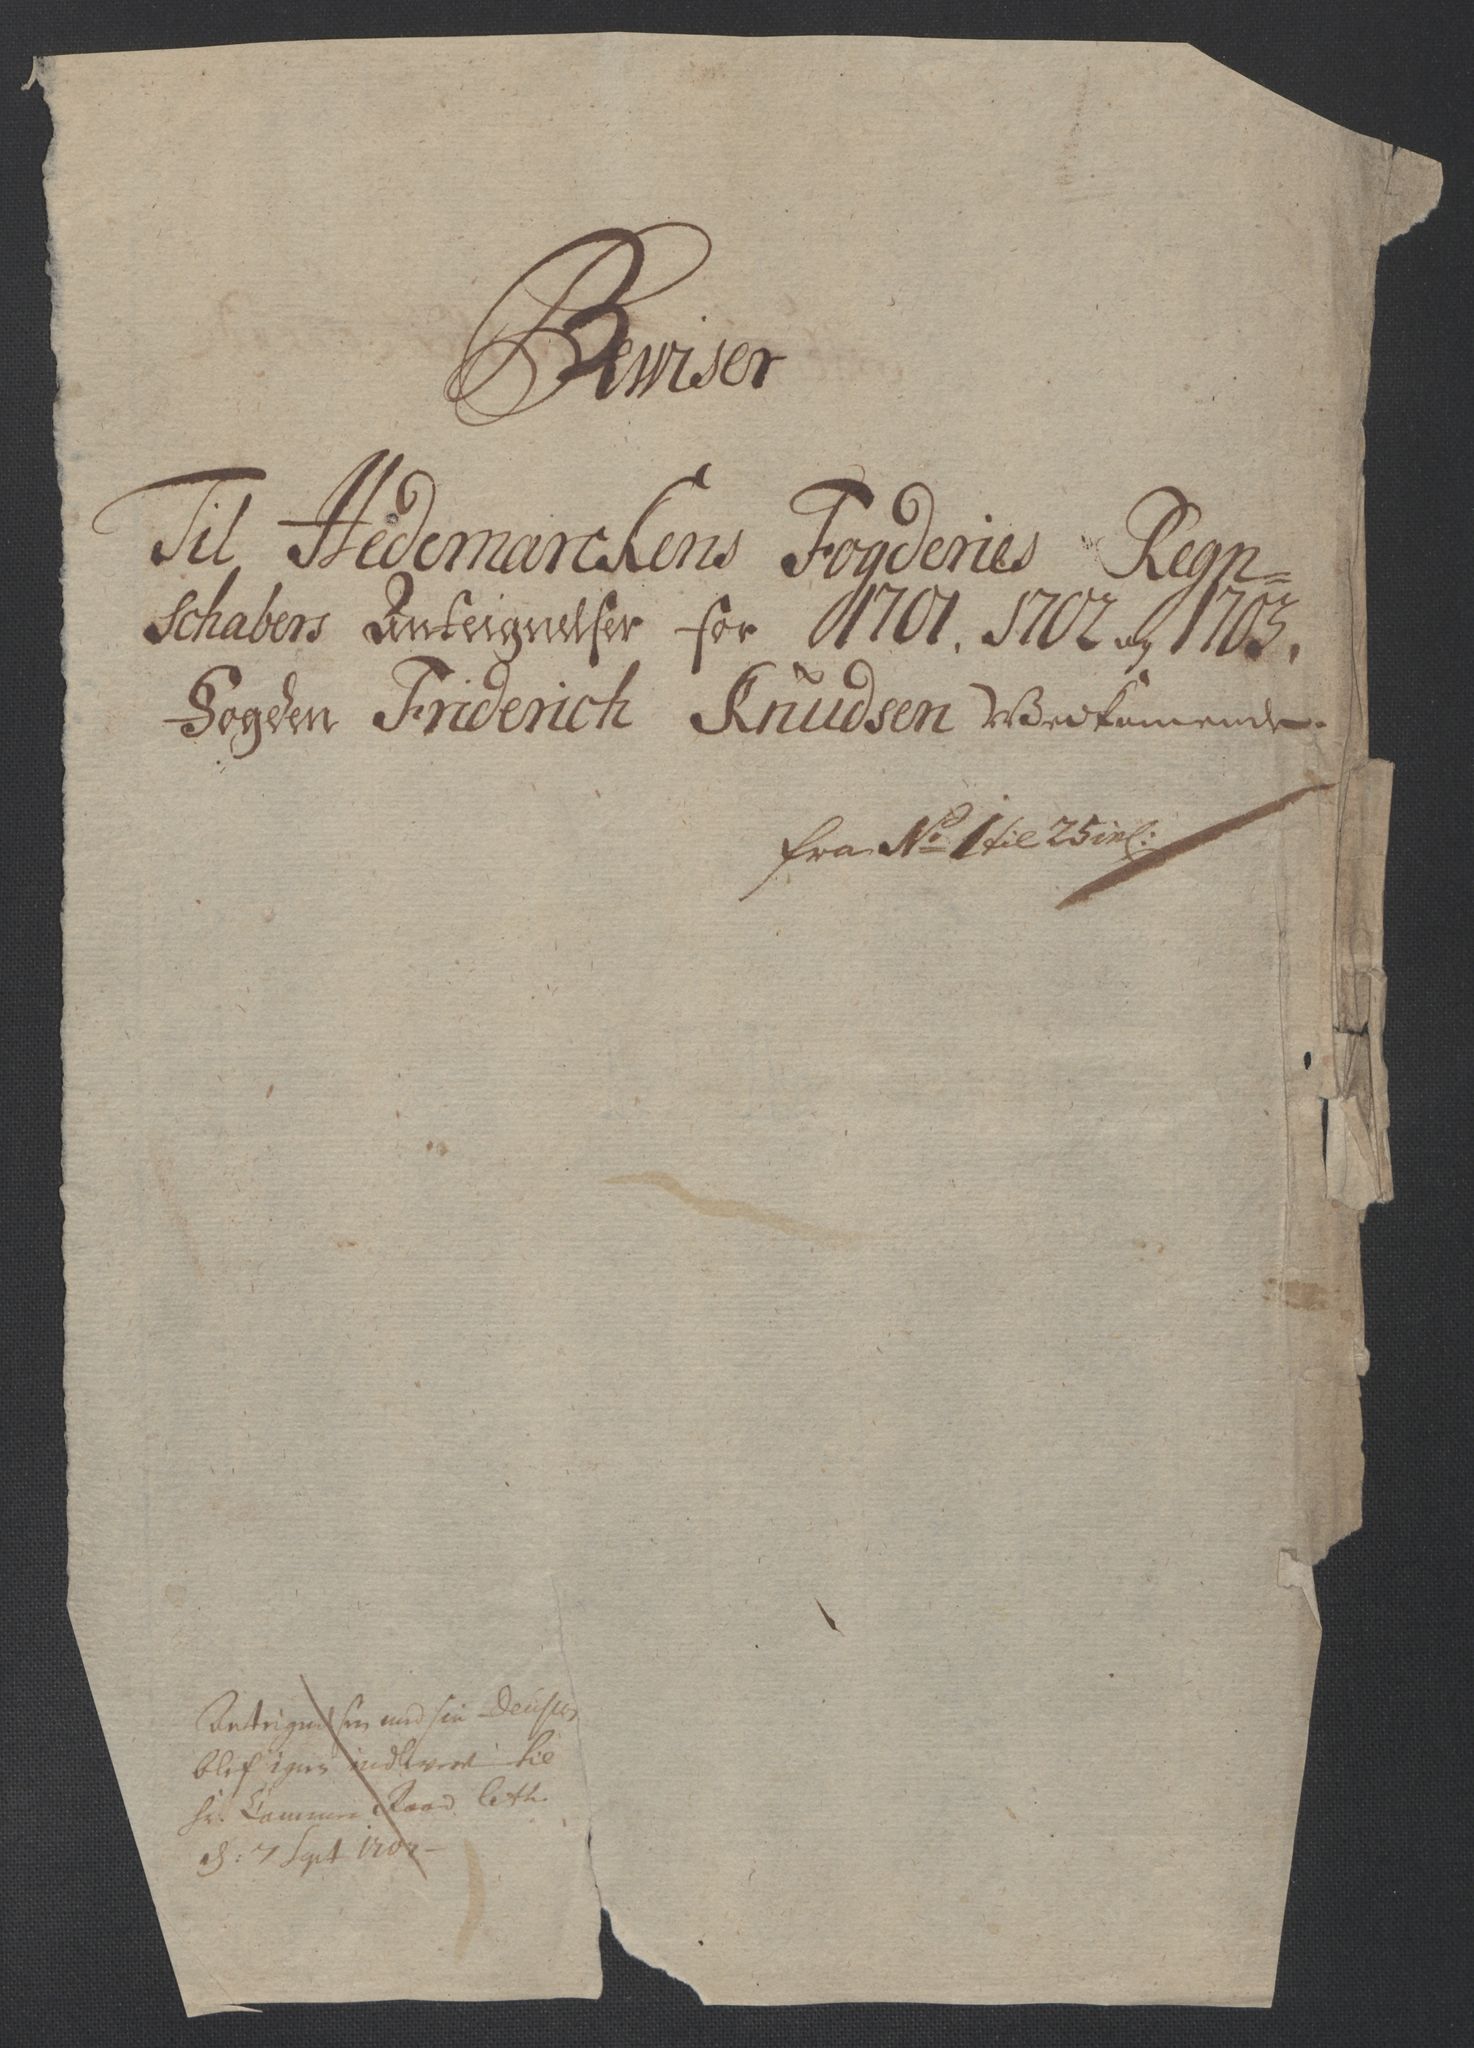 Bewiser
Til Hedemarckens Fogderies Regn=
schabers Anteignelser for 1701. 1702 og 1703.
Fogden Friderich Knudsen Vedkomende.
fra No 1 til 25 incl:
Anteignelsen med sin
blef igien indleveret til
Hr. Cammer Raad
d: 7 Sept